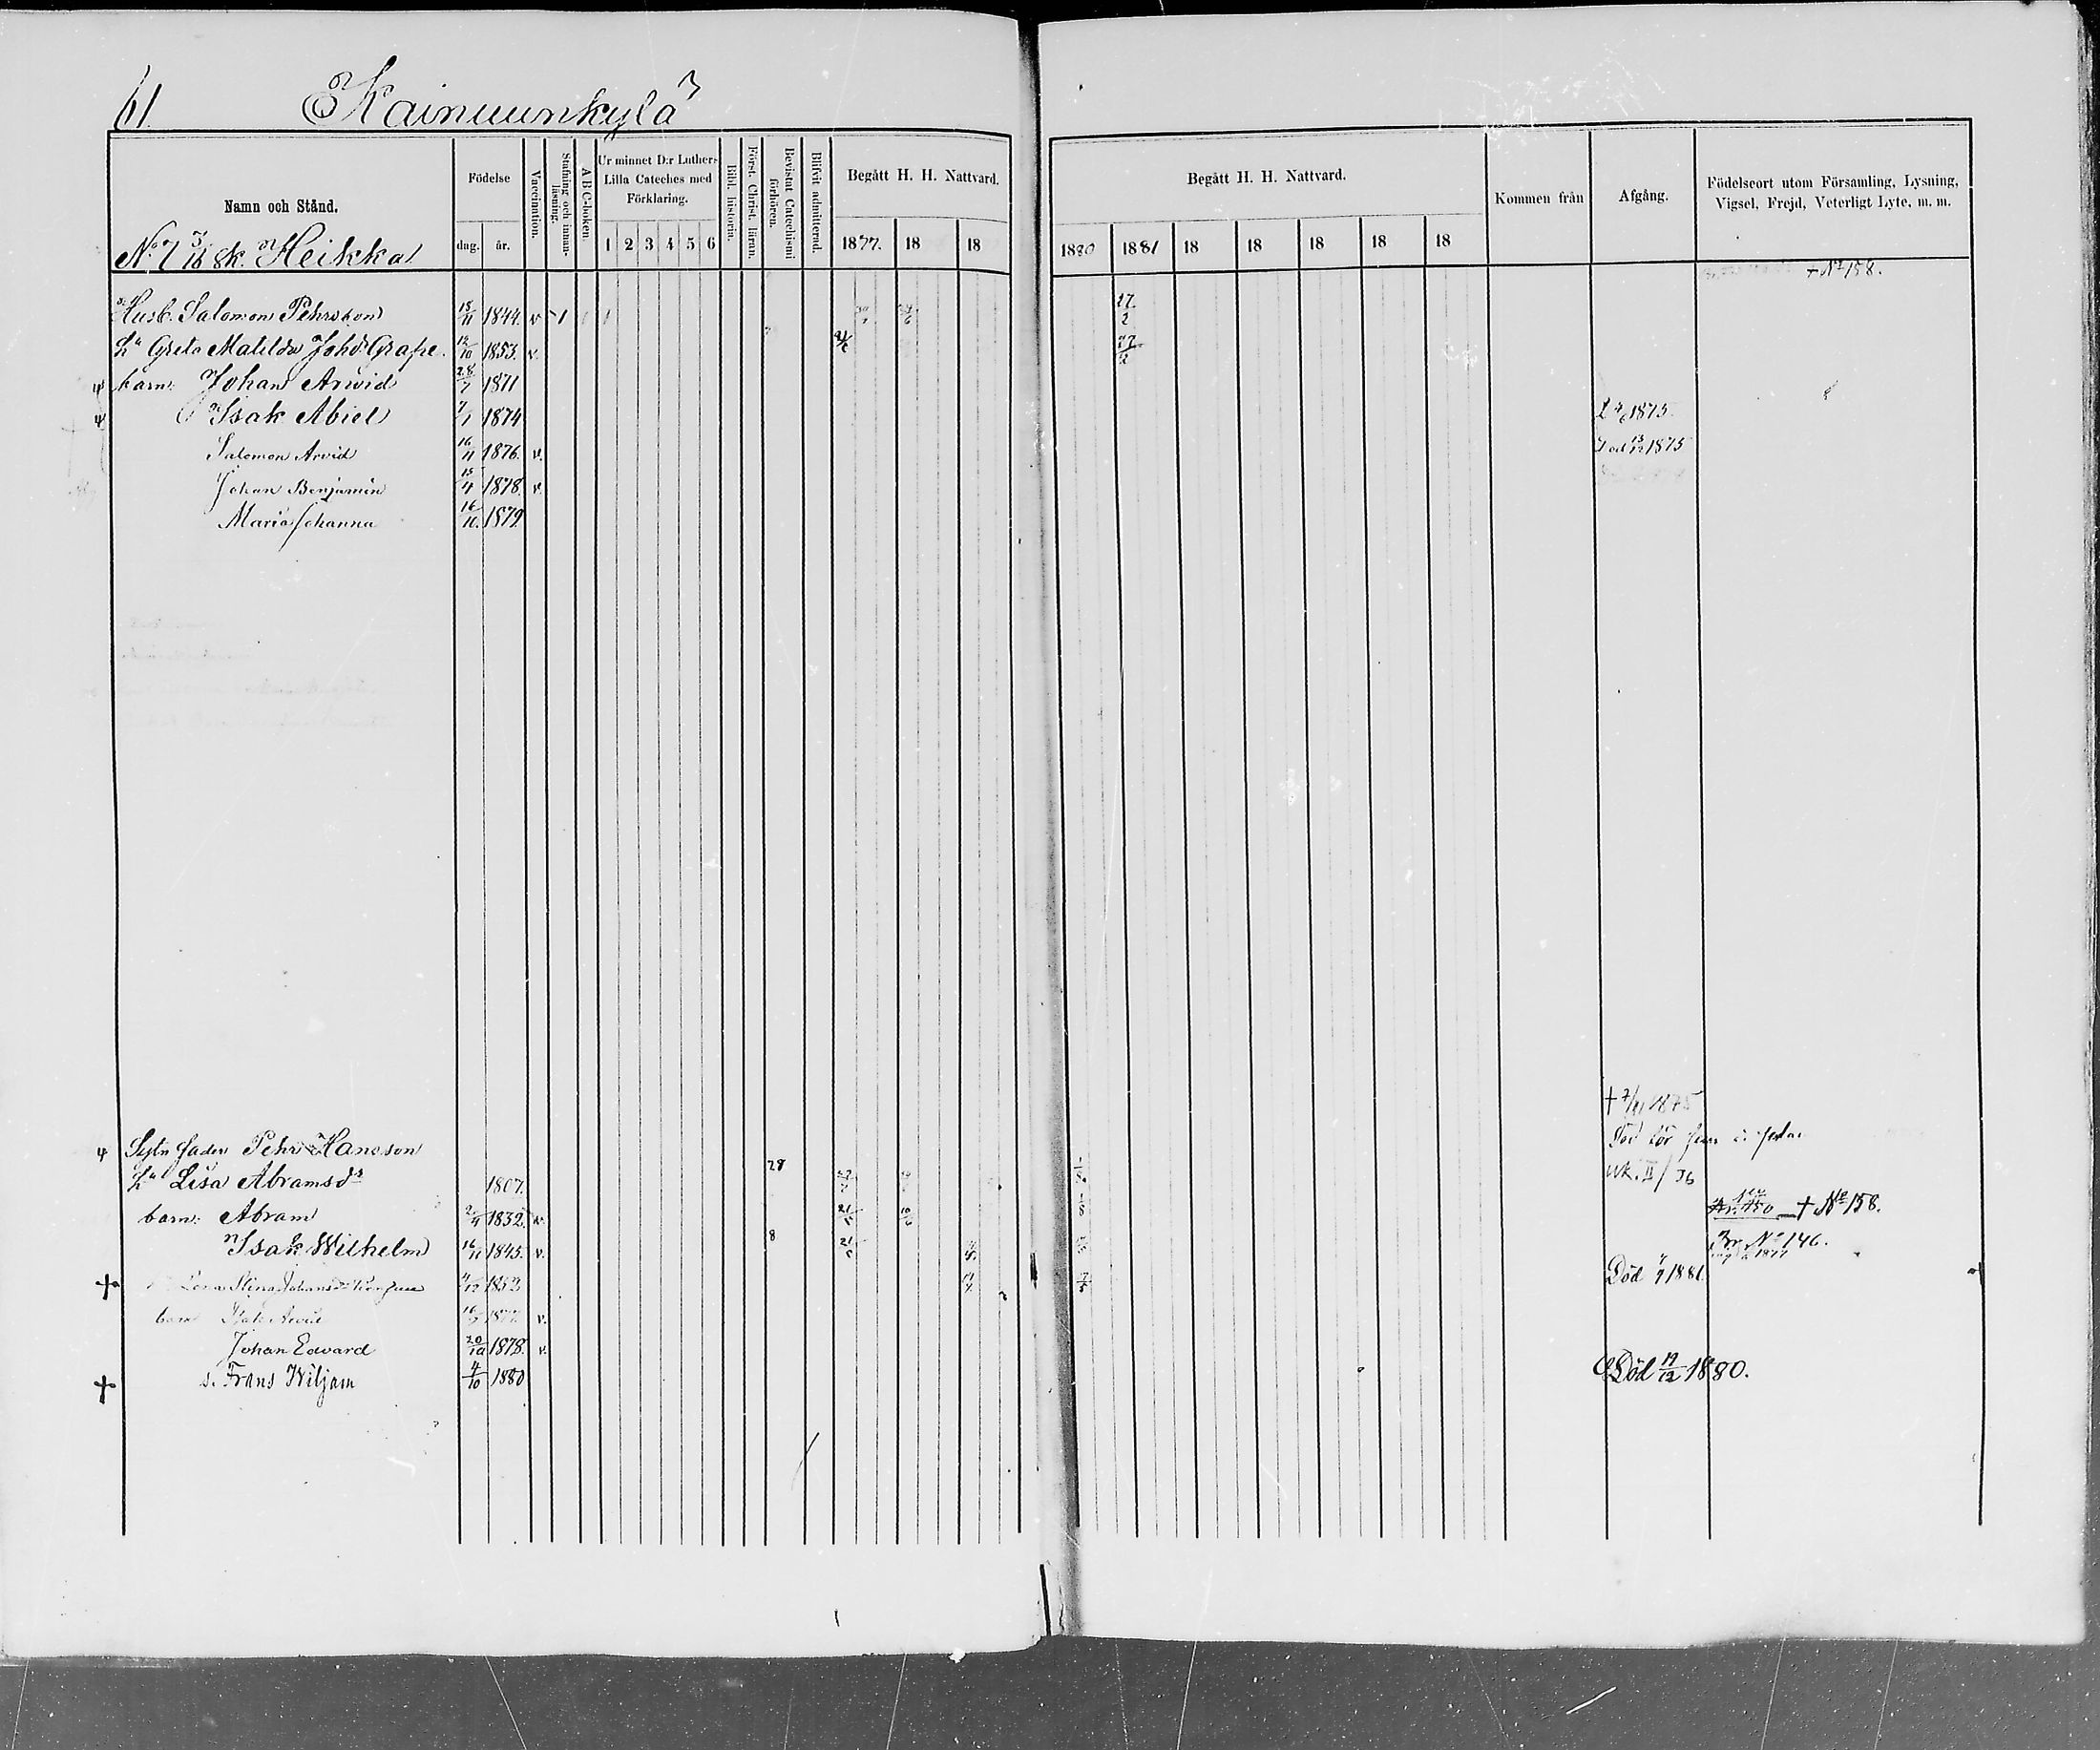 61. Kainuunkylä
Namn och Stånd.
Födelse
dag. år.
Vaccination.
Stafning och innanläsning.
ABC-boken.
Ur minnet D:r Luthers Lilla Cateches med Förklaring.
1 2 3 4 5 6
Bibl. historia.
Först. Christ. läran.
Bevistat Catechismi förhören.
Blifvit admitterad.
Begått H. H. Nattvard.
1877. 18 18
Begått H. H. Nattvard.
1880 1881 18 18 18 18 18
Kommen från
Afgång.
Födelseort utom Församling, Lysning, Vigsel, Frejd, Veterligt Lyte, m. m.
No 7 3/16 sk. Heikka
+ No 158.
Husb. Salomon Pehrsson 15/11 1844. v 27/2
Hu Greta Matilda Johsdr Grape. 12/10 1853. v. 27/2
barn: Johan Arvid 28/7 1871
Isak Abiel 7/1 1874 1875.
Salomon Arvid 16/11 1876. v. Död 13/12 1875
Johan Benjamin 15/4 1878. v.
Maria Johanna 16/10. 1879.
† 7/11 1875
Sytn. fader Pehr Hansson
Hu Lisa Abramsdr 1807. 28
barn: Abram 2/4 1832. v. 21/5 10/6 + No 158.
Isak Wilhelm 16/11 1845. v. 8 21/5 No 146.
Lena Stina 4/12 1853 Död 4/7 1881.
barn Isak Arvid 1877. v.
Johan Edvard 20/10 1878. v.
s. Frans Wiljam 4/10 1880 Död 17/12 1880.